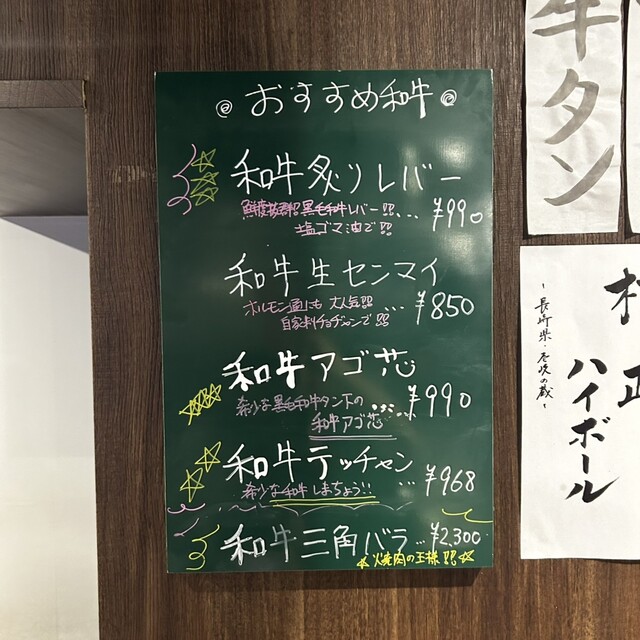 おすすめ和牛
和牛炙りレバー
鮮度抜群!!黒毛和牛レバー!!...
塩ゴマ油で!!
¥990
和牛生センマイ
ホルモン通にも大人気!!...
自家製チョヂャンで!!
¥850
和牛アゴ芯
希少な黒毛和牛タン下の
和牛アゴ芯
¥990
和牛テッチャン
希少な和牛しまちょう!!
...¥968
和牛三角バラ...¥2,300
☆焼肉の王様!!☆
牛タン
村正
ハイボール
~長崎県・壱岐の蔵~